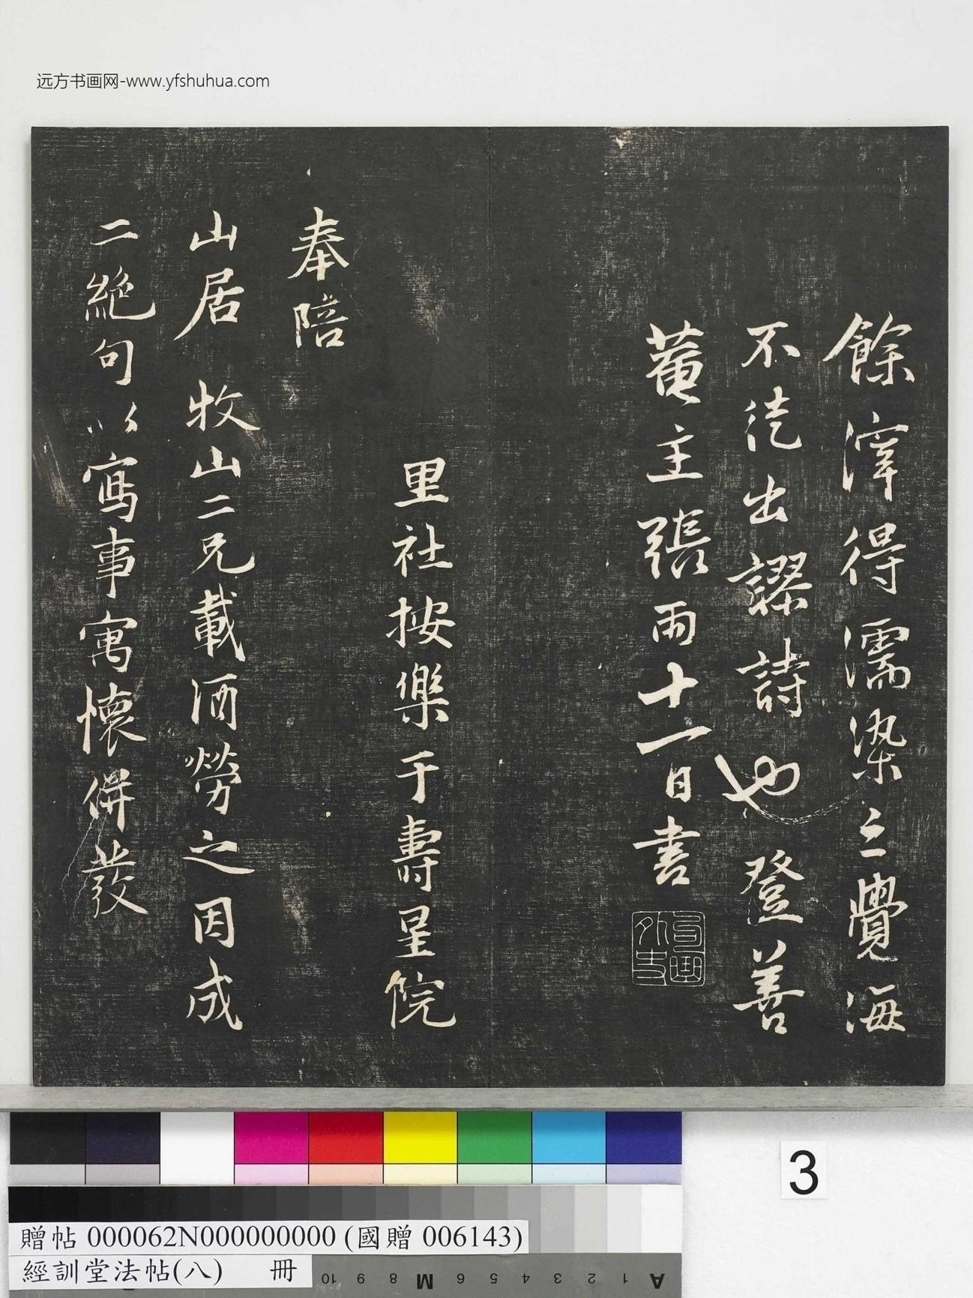 远方书画网-www.yfshuhua.com
餘滓得濡染之覺海
不徒出謬詩也登善
菴主張雨十一日書
里社按樂于壽星院
奉陪
山居 牧山二兄載酒勞之因成
二絕句以寫事寓懷併發
3
贈帖 000062N000000000 (國贈 006143)
經訓堂法帖(八) 冊
10 9 8 M 6 5 4 3 2 1 A